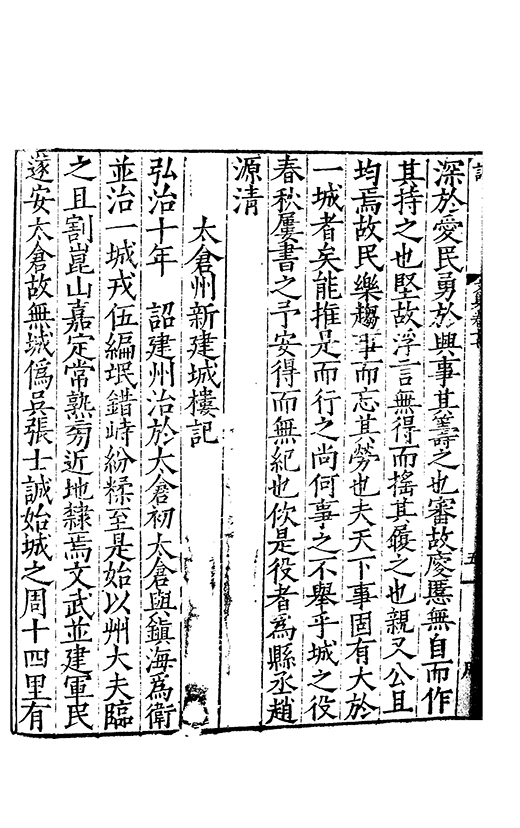 深於愛民勇於興事其籌之也審故慶慝無自而作
其持之也堅故浮言無得而搖其履之也親又公且
均焉故民樂趨事而忘其勞也夫天下事固有大於
一城者矣能推是而行之尚何事之不舉乎城之役
春秋屢書之予安得而無紀也佽是役者為縣丞趙
源清
太倉州新建城樓記
弘治十年 詔建州治於太倉初太倉與鎮海為衛
並治一城戎伍編氓錯峙紛糅至是始以州大夫臨
之且割崑山嘉定常熟旁近地隸焉文武並建軍民
遂安太倉故無城偽吳張士誠始城之周十四里有